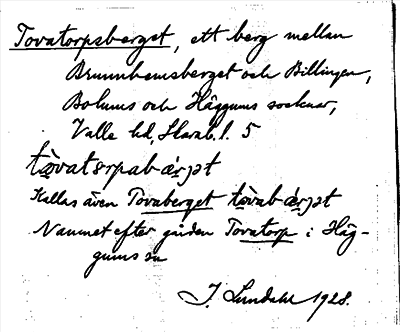 Tovatorpsberget, ett berg mellan
Brunnhemsberget och Billingen,
Bolums och Häggums socknar,
Valle hd, Skarab. l. 5
Kallas även Tovaberget
Namnet efter gården Tovatorp i Häg-
gums sn
J. Lundahl 1928.